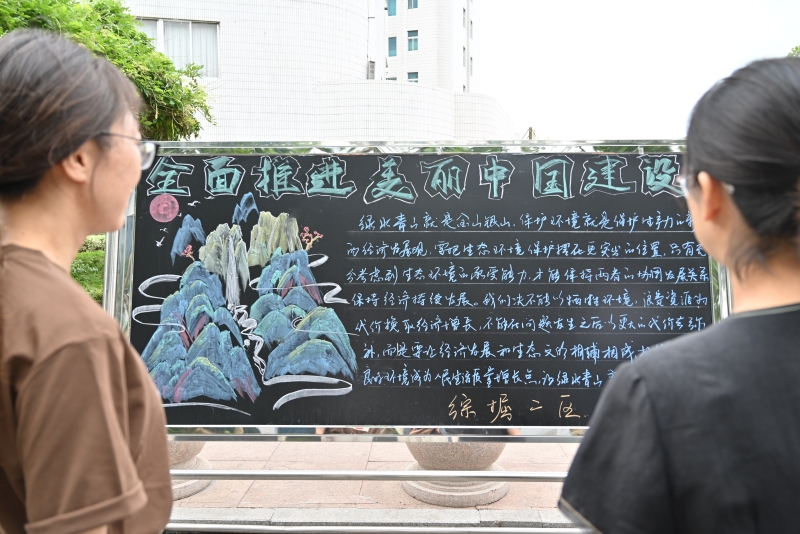 全面推进美丽中国建设
绿水青山就是金山银山，保护环境就是保护生产力的
而经济发展观，要把生态环境保护摆在更突出的位置，只有充
分考虑到生态环境的承受能力，才能保持两者的协同发展关系
保持经济持续发展，我们决不能以牺牲环境、浪费资源为
代价换取经济增长，不能在问题发生之后以更大的代价去弥
补，而是要让经济发展和生态文明相辅相成
良好环境成为人民生活质量增长点，让绿水青山
综掘二区